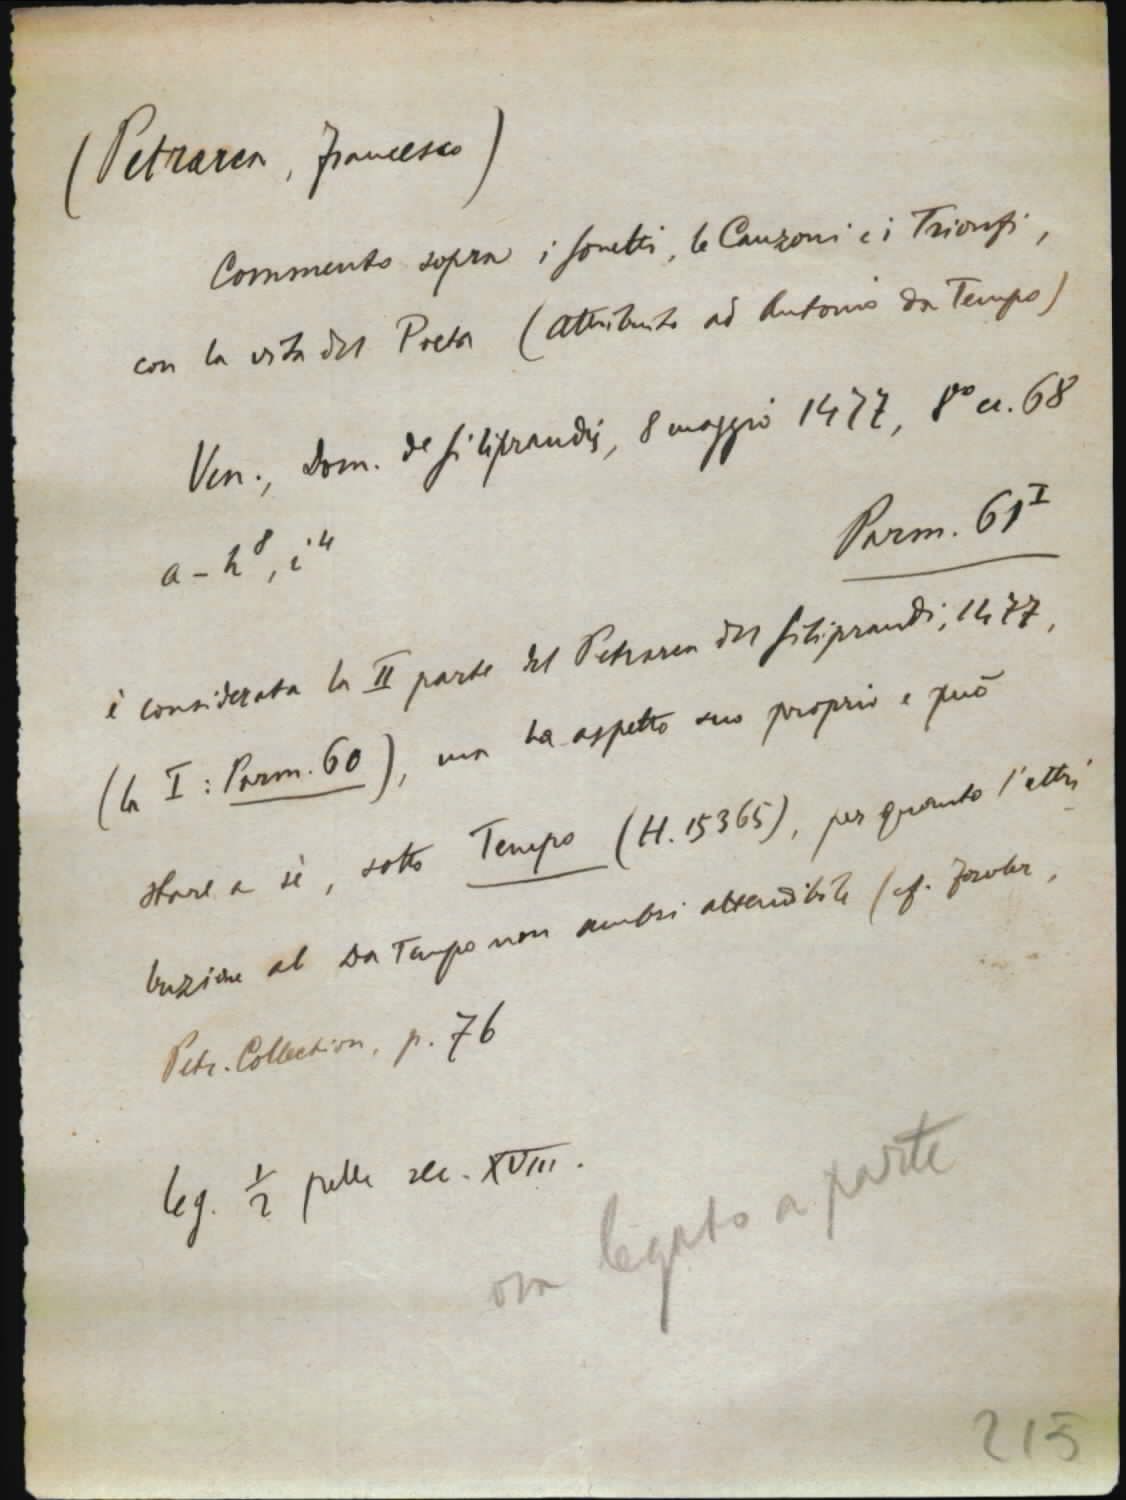 (Petrarca, Francesco)
Commento sopra i Sonetti, le Canzoni e i Trionfi,
con la vita del Poeta (attribuito ad Antonio da Tempo)
Ven., Dom. de Siliprandis, 8 maggio 1477, 8º cc. 68
a-h⁸, i⁴
Parm. 61ᴵ
è considerata la II parte del Petrarca del Siliprandi, 1477,
(la I: Parm. 60), ma ha aspetto suo proprio e può
stare a sè, sotto Tempo (H. 15365), per quanto l'attri
buzione al Da Tempo non sembri attendibile (cf. Fowler,
Petr. Collection, p. 76
leg. ½ pelle sec. XVIII.
ora legato a parte
215